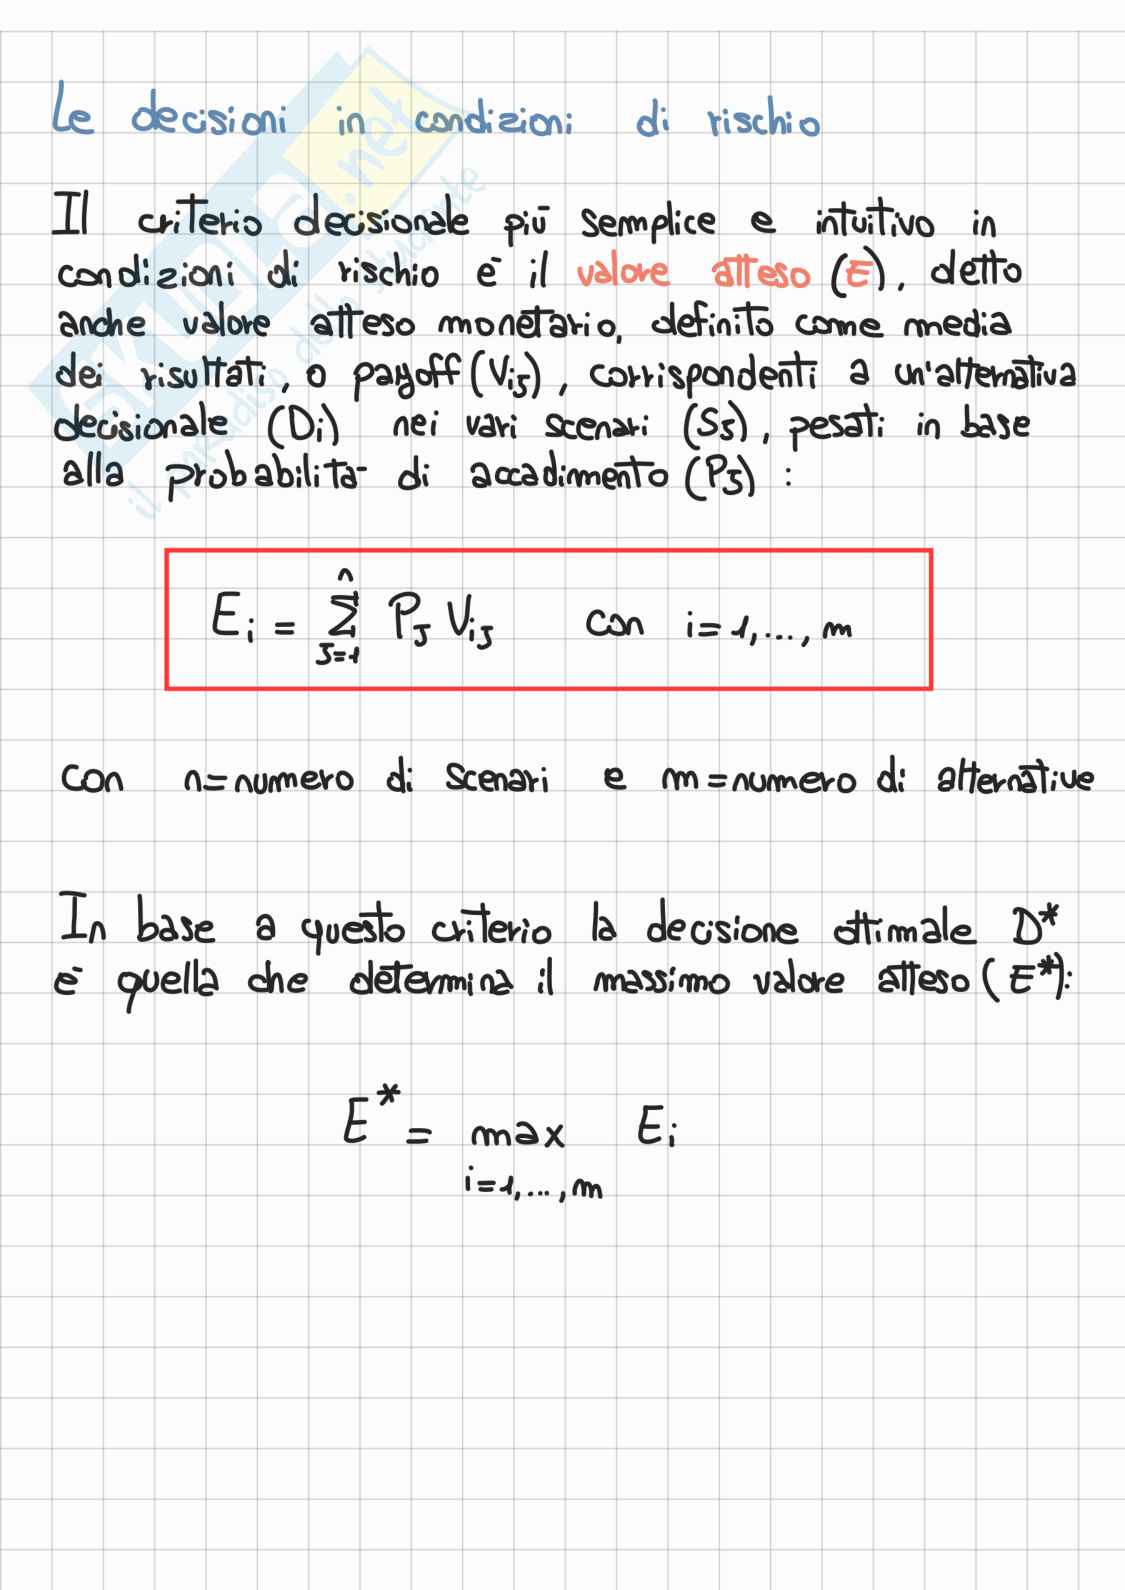 Le decisioni in condizioni di rischio
Il criterio decisionale più semplice e intuitivo in
condizioni di rischio è il valore atteso (E), detto
anche valore atteso monetario, definito come media
dei risultati, o payoff (Vij), corrispondenti a un'alternativa
decisionale (Di) nei vari scenari (Sj), pesati in base
alla probabilità di accadimento (Pj) :
Ei = Σ Pj Vij con i=1,..., m
n
j=1
con n=numero di scenari e m=numero di alternative
In base a questo criterio la decisione ottimale D*
è quella che determina il massimo valore atteso (E*):
E* = max Ei
i=1,...,m
SKUOLA.net
il paradiso dello studente